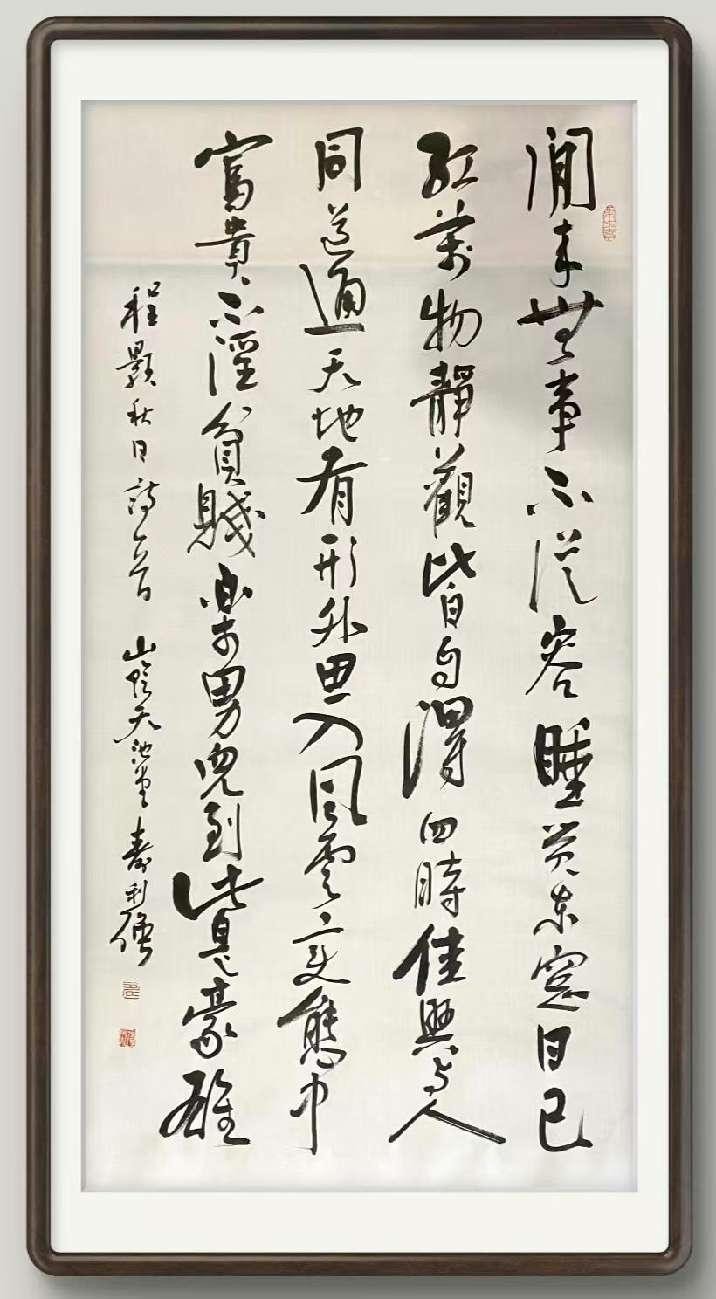 閒来無事不從容睡覺東窓日已
紅萬物靜觀皆自得四時佳興与人
同道通天地有形外思入風雲變態中
富貴不淫貧賤樂男兒到此是豪雄
程顥秋日詩一首 山陰天池 壽利